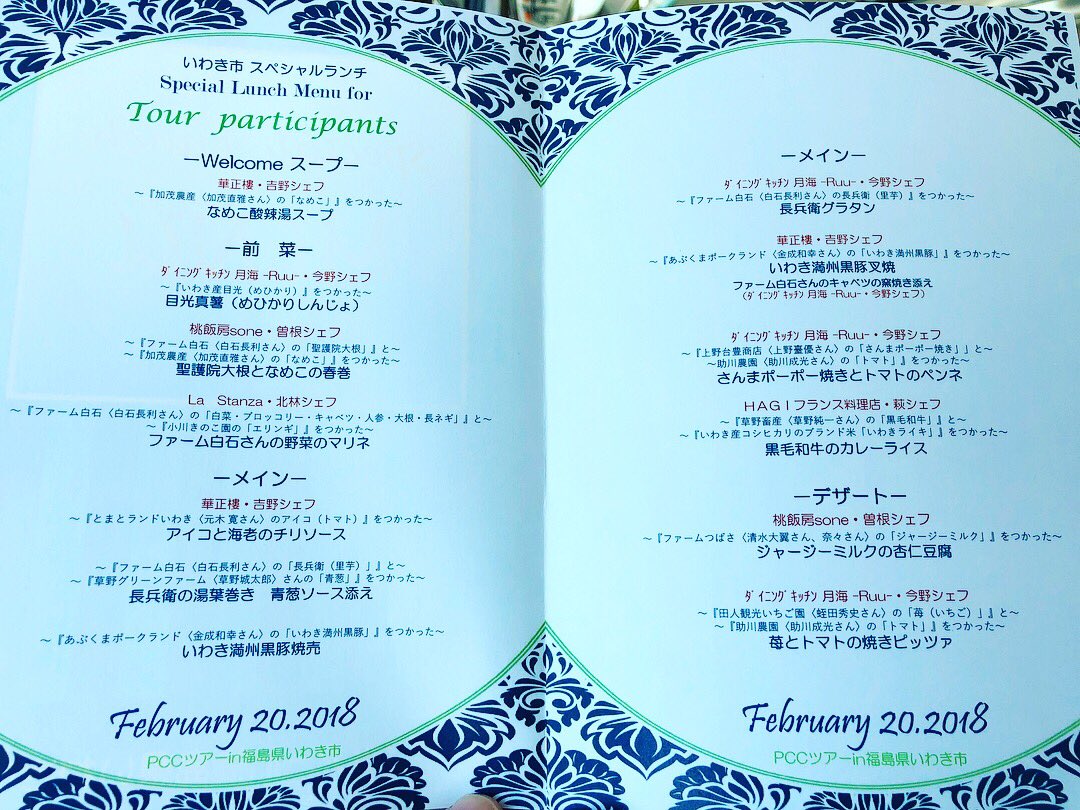 いわき市 スペシャルランチ
Special Lunch Menu for
Tour participants
ーWelcome スープー
華正樓・吉野シェフ
～『加茂農産〈加茂直雅さん〉の「なめこ」をつかった～
なめこ酸辣湯スープ
ー前 菜ー
ﾀﾞｲﾆﾝｸﾞｷｯﾁﾝ 月海 -Ruu-・今野シェフ
～『いわき産目光（めひかり）』をつかった～
目光真薯（めひかりしんじょ）
桃飯房sone・曽根シェフ
～『ファーム白石〈白石長利さん〉の「聖護院大根」』と～
～『加茂農産〈加茂直雅さん〉の「なめこ」』をつかった～
聖護院大根となめこの春巻
La Stanza・北林シェフ
～『ファーム白石〈白石長利さん〉の「白菜・ブロッコリー・キャベツ・人参・大根・長ネギ」』と～
～『小川きのこ園の「エリンギ」』をつかった～
ファーム白石さんの野菜のマリネ
ーメインー
華正樓・吉野シェフ
～『とまとランドいわき〈元木 寛さん〉のアイコ（トマト）』をつかった～
アイコと海老のチリソース
～『ファーム白石〈白石長利さん〉の「長兵衛（里芋）」』と～
～『草野グリーンファーム〈草野城太郎〉さんの「青葱」』をつかった～
長兵衛の湯葉巻き 青葱ソース添え
～『あぶくまポークランド〈金成和幸さん〉の「いわき満州黒豚」』をつかった～
いわき満州黒豚焼売
February 20.2018
PCCツアーin福島県いわき市
ーメインー
ﾀﾞｲﾆﾝｸﾞｷｯﾁﾝ 月海 -Ruu-・今野シェフ
～『ファーム白石〈白石長利さん〉の長兵衛（里芋）』をつかった～
長兵衛グラタン
華正樓・吉野シェフ
～『あぶくまポークランド〈金成和幸さん〉の「いわき満州黒豚」』をつかった～
いわき満州黒豚叉焼
ファーム白石さんのキャベツの窯焼き添え
（ﾀﾞｲﾆﾝｸﾞｷｯﾁﾝ 月海 -Ruu-・今野シェフ）
ﾀﾞｲﾆﾝｸﾞｷｯﾁﾝ 月海 -Ruu-・今野シェフ
～『上野台豊商店〈上野臺優さん〉の「さんまポーポー焼き」」と～
～助川農園〈助川成光さん〉の「トマト」』をつかった～
さんまポーポー焼きとトマトのペンネ
ＨＡＧＩフランス料理店・萩シェフ
～『草野畜産〈草野純一さん〉の「黒毛和牛」』と～
～『いわき産コシヒカリのブランド米「いわきライキ」』をつかった～
黒毛和牛のカレーライス
ーデザートー
桃飯房sone・曽根シェフ
～『ファームつばさ〈清水大翼さん、奈々さん〉の「ジャージーミルク」』をつかった～
ジャージーミルクの杏仁豆腐
ﾀﾞｲﾆﾝｸﾞｷｯﾁﾝ 月海 -Ruu-・今野シェフ
～『田人観光いちご園〈蛭田秀史さん〉の「苺（いちご）」』と～
～『助川農園〈助川成光さん〉の「トマト」』をつかった～
苺とトマトの焼きピッツァ
February 20.2018
PCCツアーin福島県いわき市